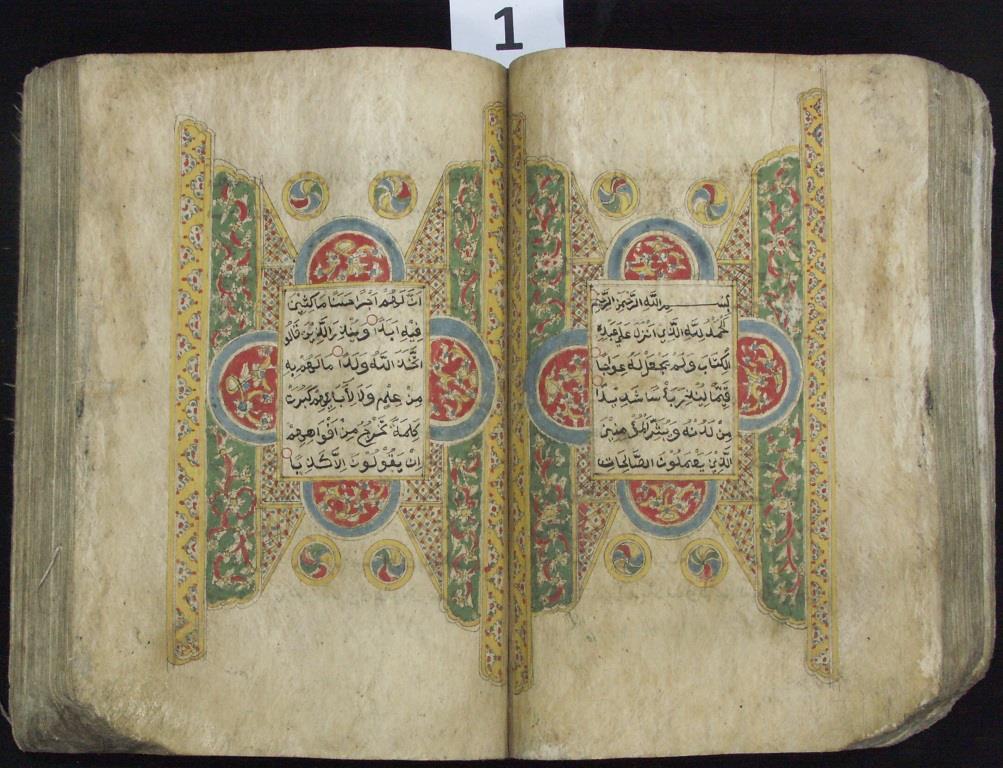 1
بسم الله الرحمن الرحيم
الحمد لله الذي انزل على عبده
الكتاب ولم يجعل له عوجا
قيما لينذر بأسا شديدا
من لدنه ويبشر المؤمنين
الذين يعملون الصالحات
ان لهم اجرا حسنا ماكثين
فيه ابدا وينذر الذين قالوا
اتخذ الله ولدا ما لهم به
من علم ولا لأبايهم كبرت
كلمة تخرج من افواههم
ان يقولون الا كذبا